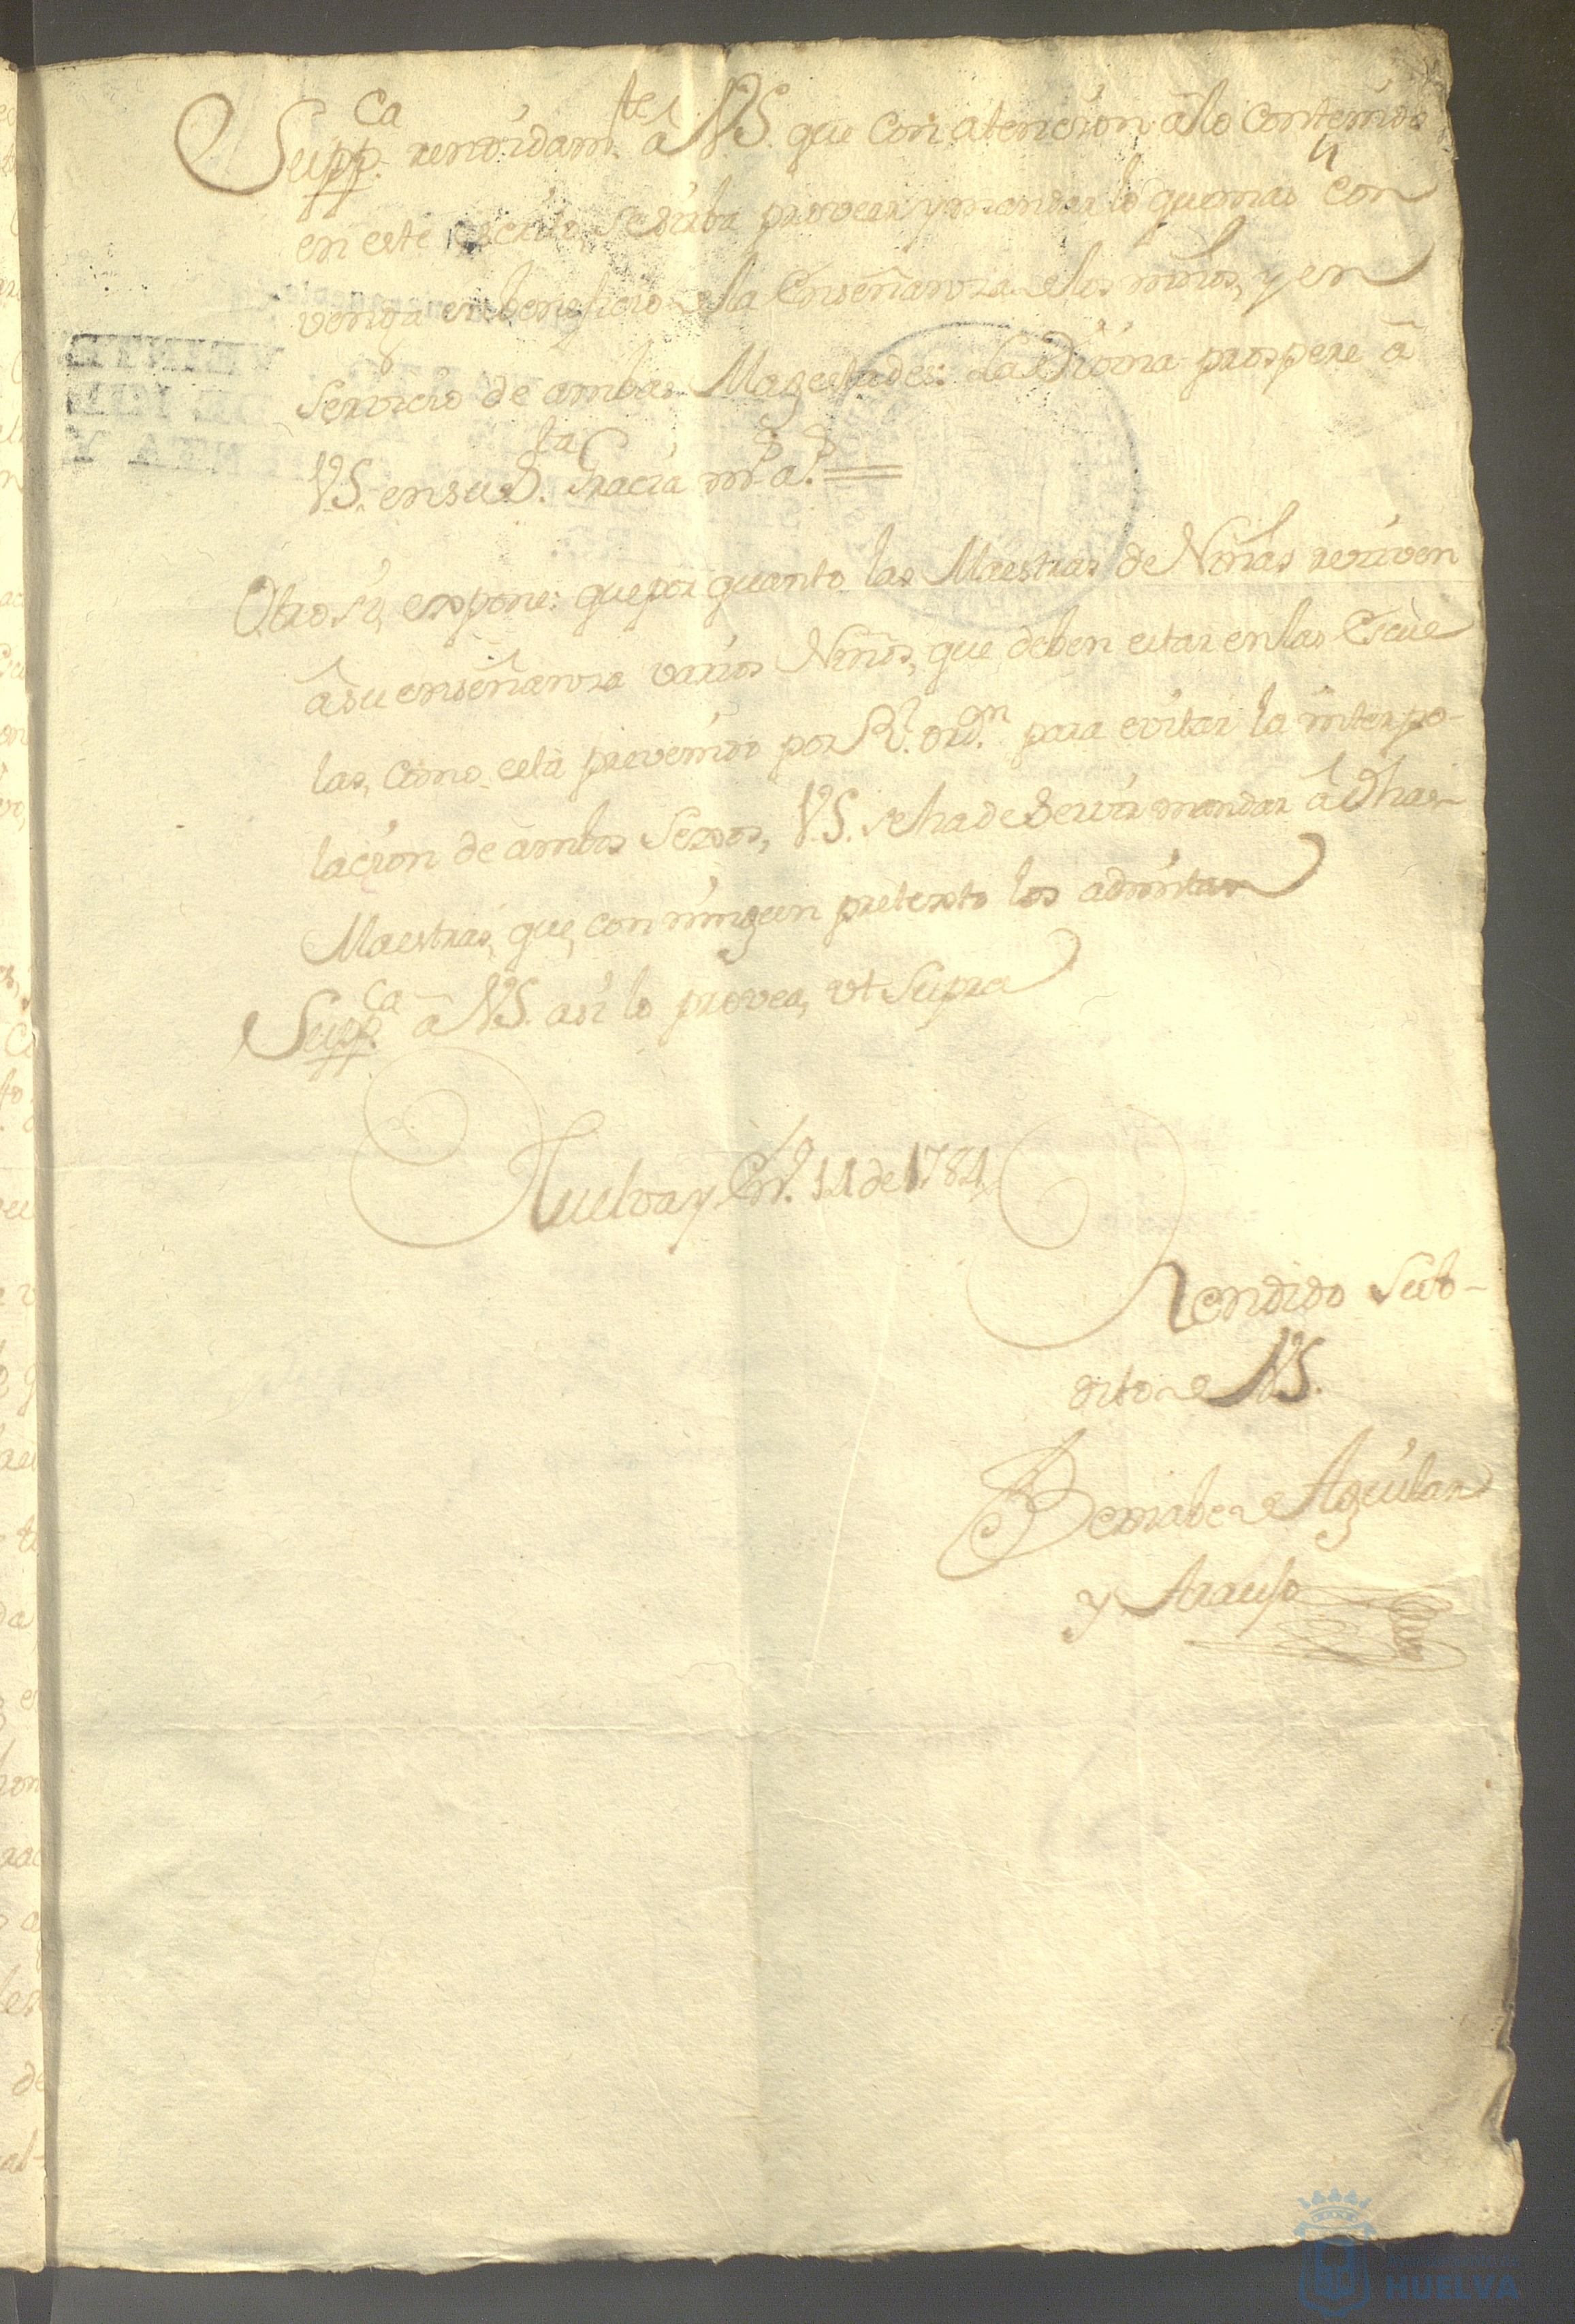 Supp.ca rendidam.te â VS. que con atencion âlo contenido
en este escrito, se sirba proveer y mandar lo que mas con
venga en beneficio de la Enseñanza de los niños, y en
servicio de ambas Magestades: La Divina prospere â
VS. en su S.ta Gracia m.s a.s
Otro si, expone: que por quanto las Maestras de Niñas reciven
â su enseñanza varios Niños, que deben estar en las Escue
las, como està prevenido por R.l ord.n para evitar la interpo-
lacion de ambos Sexos, VS. se ha de servir mandar â dhas
Maestras, que, con ningun pretexto los admitan
Supp.ca â VS. asi lo provea, vt Supra
Huelva y En.o 11 de 1784
Rendido Sub-
dito de VS.
Bernabe de Aguilar
y Araujo
HUELVA